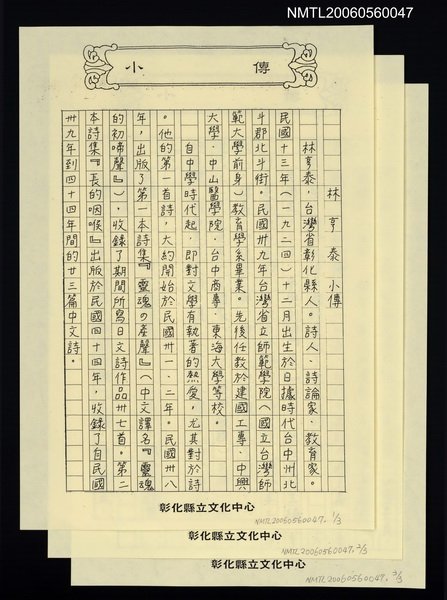 NMTL20060560047
小傳
林亨泰 小傳
林亨泰，台灣省彰化縣人。詩人、詩論家、教育家。
民國十三年（一九二四）十二月出生於日據時代台中州北
斗郡北斗街。民國卅九年台灣省立師範學院（國立台灣師
範大學前身）教育學系畢業。先後任教於建國工專、中興
大學、中山醫學院、台中商專、東海大學等校。
自中學時代起，即對文學有執著的熱愛，尤其對於詩
。他的第一首詩，大約開始於民國卅一、二年。民國卅八
年，出版了第一本詩集『靈魂の產聲』（中文譯名『靈魂
的初啼聲』），收錄了期間所寫日文詩作品卅七首。第二
本詩集『長的咽喉』出版於民國四十四年，收錄了自民國
卅九年到四十四年間的廿三篇中文詩。
彰化縣立文化中心
NMTL20060560047. 1/3
彰化縣立文化中心
NMTL20060560047. 2/3
彰化縣立文化中心
NMTL20060560047. 3/3